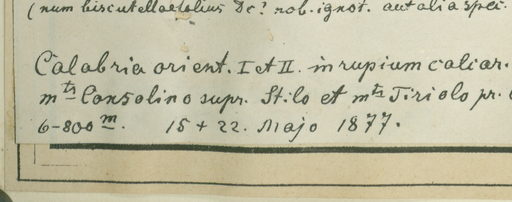 (num biscutellaefolius Dc? nob. ignot. aut alia spec.
Calabria orient. I et II. in rupium calcar.
mts Consolino supr. Stilo et mts Tiriolo pr.
6-800m. 15 + 22. Majo 1877.